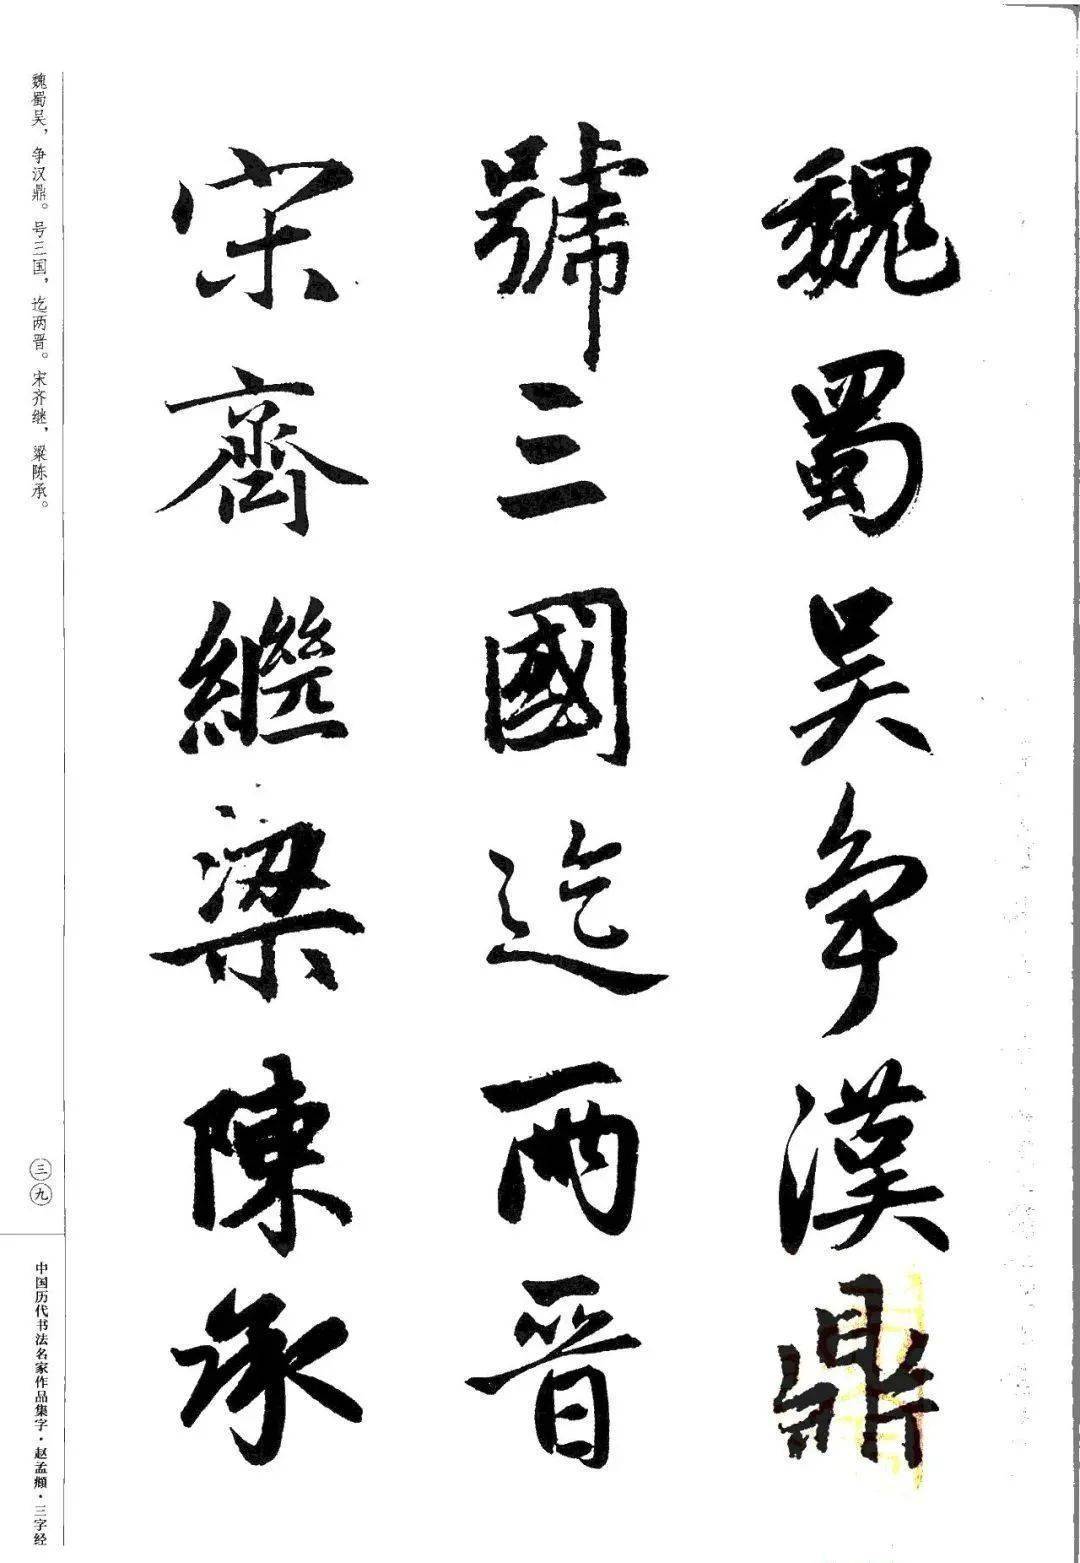 魏蜀吴争漢鼎
號三國迄兩晋
宋齊繼梁陳承
魏蜀吴，争汉鼎。号三国，迄两晋。宋齐继，粱陈承。
三九
中国历代书法名家作品集字·赵孟頫·三字经